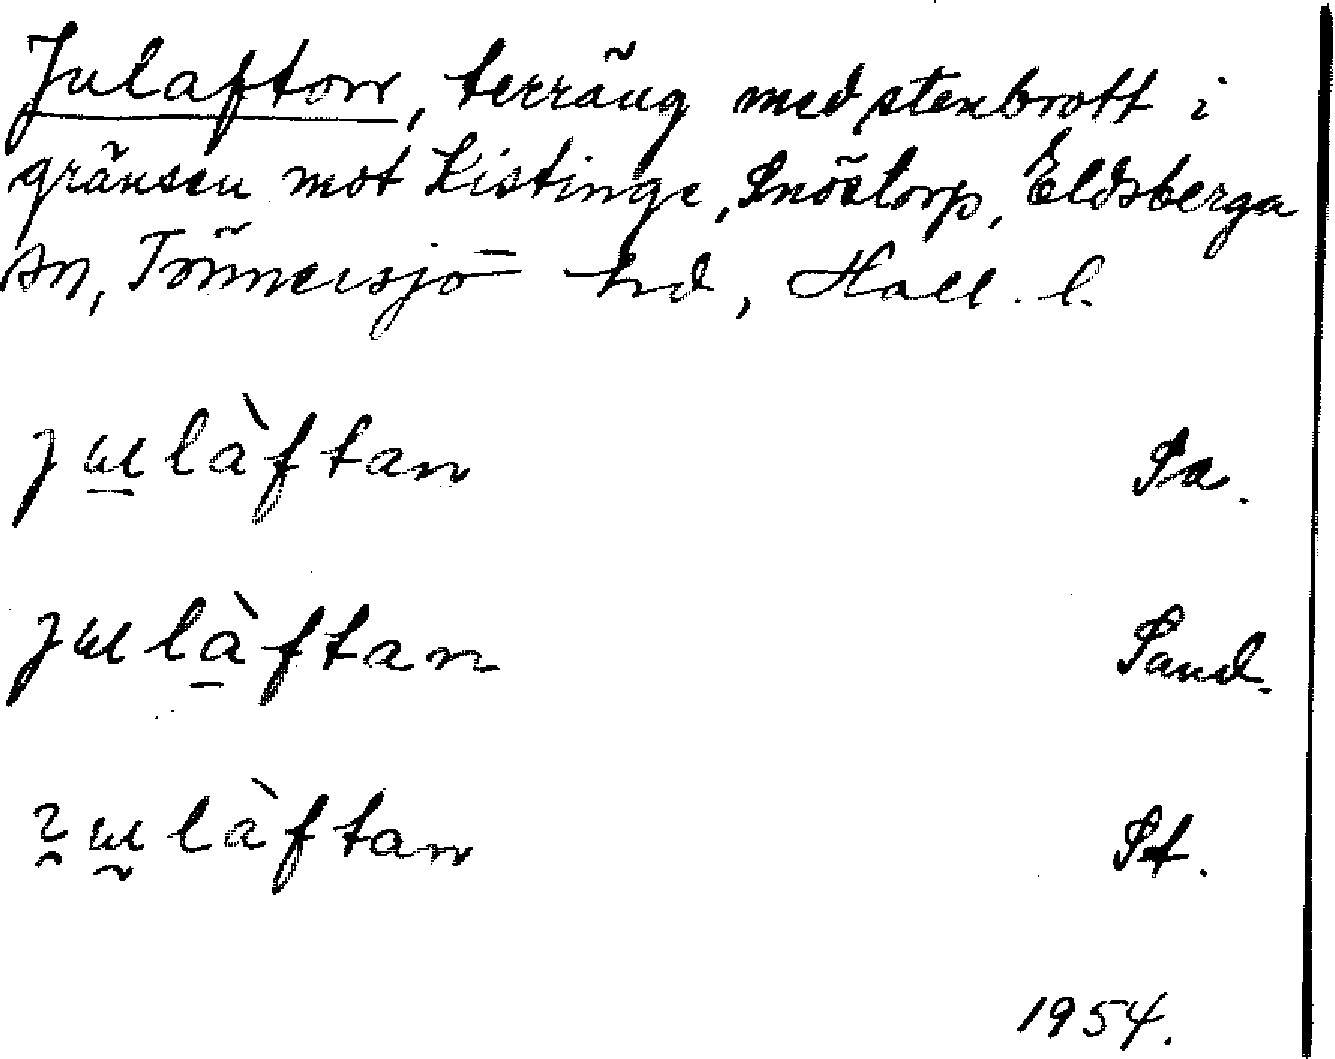 Julafton, terräng med stenbrott i
gränsen mot Kistinge, Snöstorp, Eldsberga
sn, Tönnersjö hd, Hall. l.
jɯlàftan Sa.
jɯlàftan Sand.
ɯlàftan St.
1954.